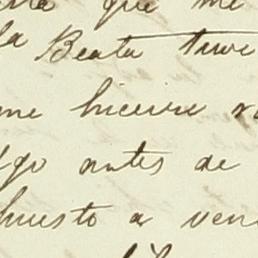 que me
la Beata tuve
me hiciere
antes de
puesto a ven